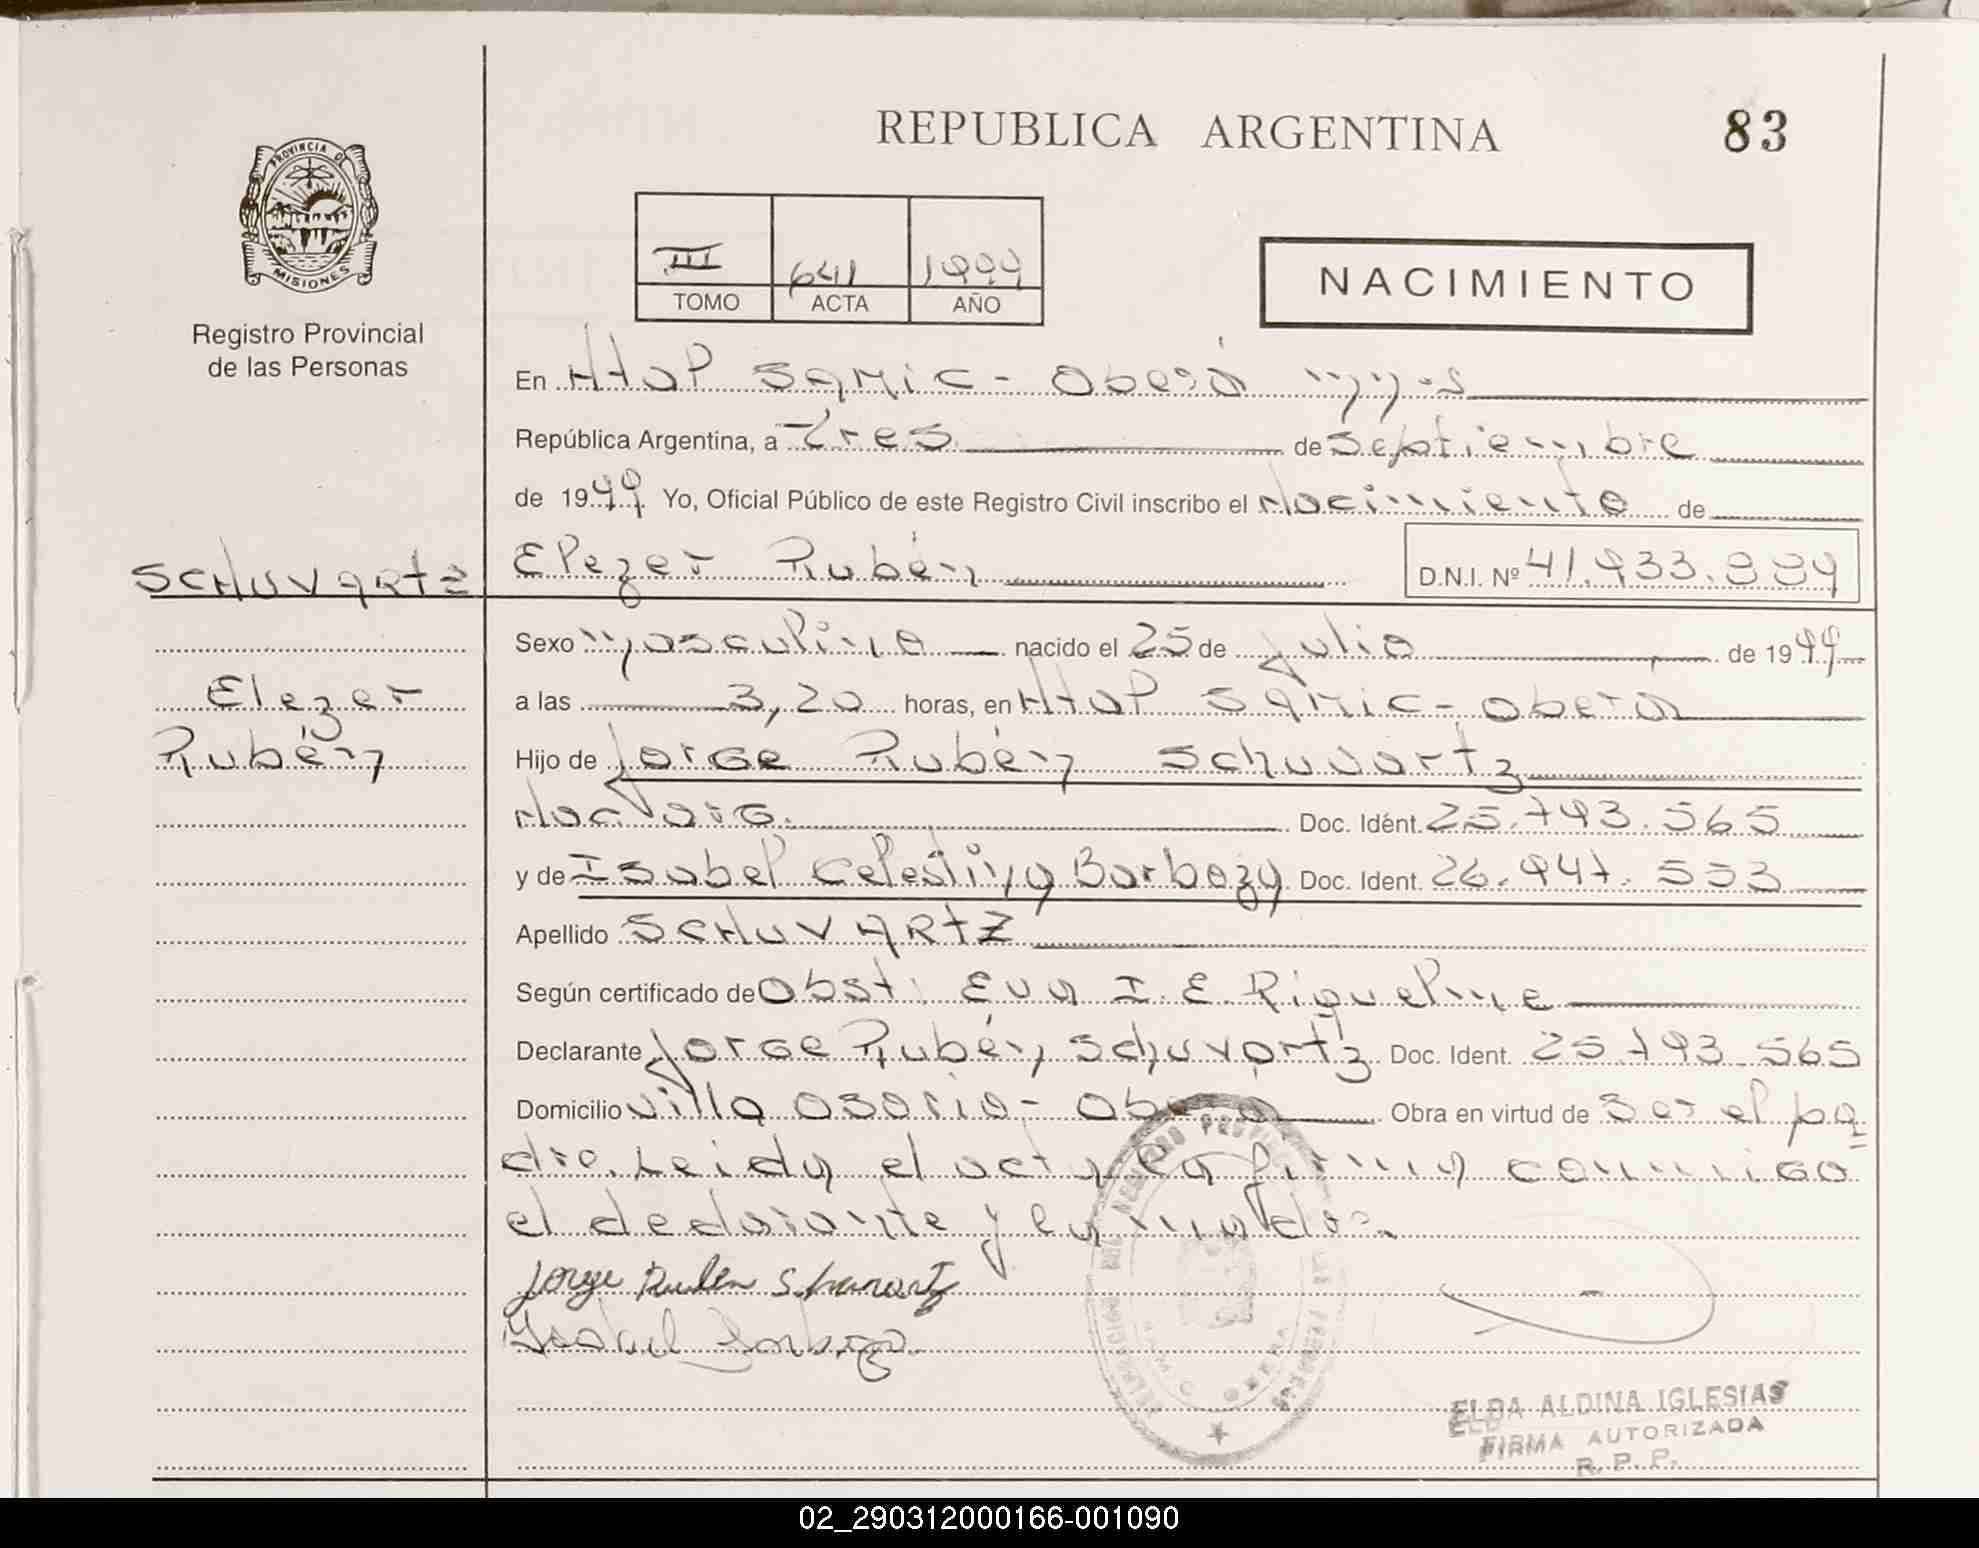 REPUBLICA ARGENTINA
83
PROVINCIA DE
MISIONES
Registro Provincial
de las Personas
III 641 1999
TOMO ACTA AÑO
NACIMIENTO
En Htal Samic - Oberá Mnes
República Argentina, a Tres de Septiembre
de 1999 Yo, Oficial Público de este Registro Civil inscribo el Nacimiento de
SCHUVARTZ
Elezer Rubén D.N.I. Nº
Sexo Masculino nacido el 25 de Julio de 1999
Elezer
Rubén
a las 3,20 horas, en Htal Samic - Oberá
Hijo de Jorge Rubén Schuvartz
Doc. Idént. 25.793.565
y de Isabel Celestina Barboza Doc. Ident. 26.947.553
Apellido SCHUVARTZ
Según certificado de Obst. Eva I. E. Riquelme
Declarante Jorge Rubén Schuvartz Doc. Ident. 25.793.565
Domicilio Villa Osorio - Oberá Obra en virtud de Ser el pa
dre. Leida el acta la firma conmigo
el declarante y la madre.
Jorge Ruben Schuvartz
Isabel Barboza
ELBA ALDINA IGLESIAS
FIRMA AUTORIZADA
R. P. P.
02_290312000166-001090